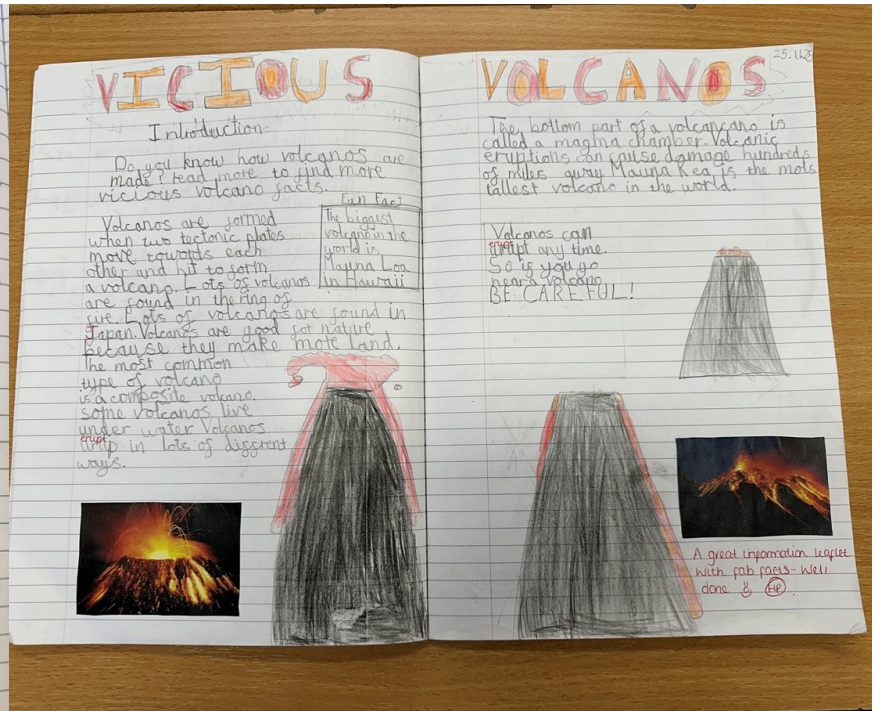 VICIOUS
Introduction
Do you know how volcanos are
made? read more to find more
vicious volcano facts.
Volcanos are formed
when two tectonic plates
move towards each
other and hit to form
a volcano. Lots of volcanos
are found in the ring of
fire. Lots of volcanos are found in
Japan. Volcanos are good for nature
because they make more land.
The most common
type of volcano
is a composite volcano.
some volcanos live
under water Volcanos
erupt
in lots of different
ways.
Fun Fact
The biggest
volcano in the
world is
Mauna Loa
in Hawaii
VOLCANOS
The bottom part of a volcancano is
called a magma chamber. Volcanic
eruptions can cause damage hundreds
of miles away Mauna Kea is the mots
tallest volcano in the world.
Volcanos can
erupt
at any time.
So if you go
near a volcano
BE CAREFUL!
A great information leaflet
with fab facts - Well
done HP